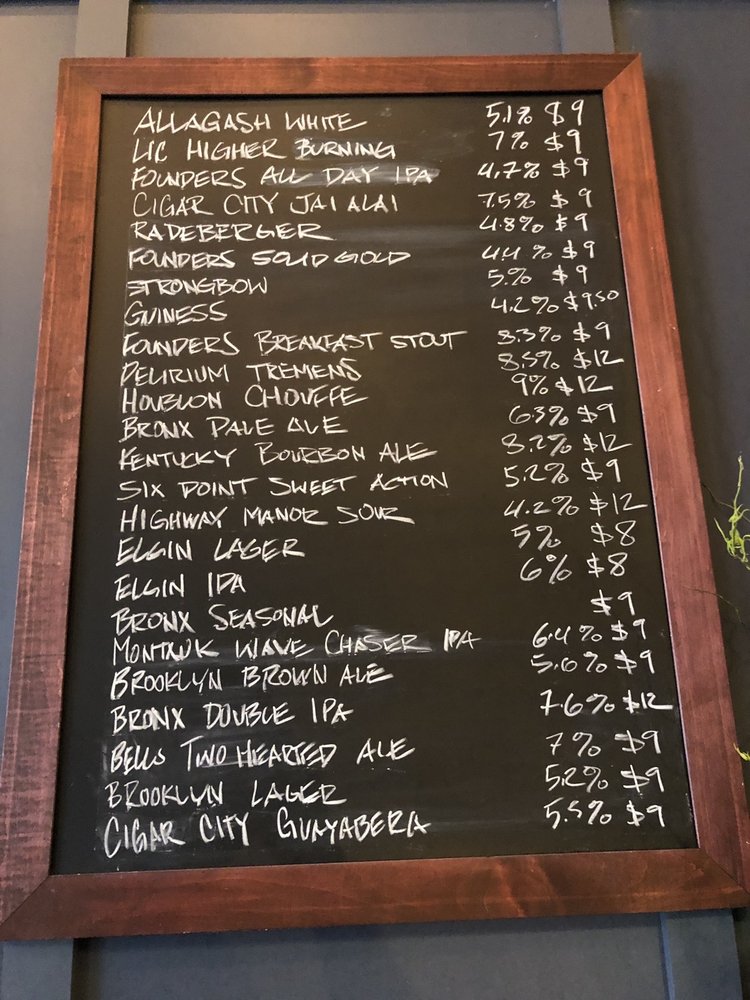 ALLAGASH WHITE 5.1% $9
LIC HIGHER BURNING 7% $9
FOUNDERS ALL DAY IPA 4.7% $9
CIGAR CITY JAI ALAI 7.5% $9
RADEBERGER 4.8% $9
FOUNDERS SOLID GOLD 4.4% $9
STRONGBOW 5.% $9
GUINESS 4.2% $9.50
FOUNDERS BREAKFAST STOUT 8.3% $9
DELIRIUM TREMENS 8.5% $12
HOUBLON CHOUFFE 9% $12
BRONX PALE ALE 6.3% $9
KENTUCKY BOURBON ALE 8.2% $12
SIX POINT SWEET ACTION 5.2% $9
HIGHWAY MANOR SOUR 4.2% $12
ELGIN LAGER 5% $8
ELGIN IPA 6% $8
BRONX SEASONAL $9
MONTAUK WAVE CHASER IPA 6.4% $9
BROOKLYN BROWN ALE 5.6% $9
BRONX DOUBLE IPA 7.6% $12
BELLS TWO HEARTED ALE 7% $9
BROOKLYN LAGER 5.2% $9
CIGAR CITY GUAYABERA 5.5% $9